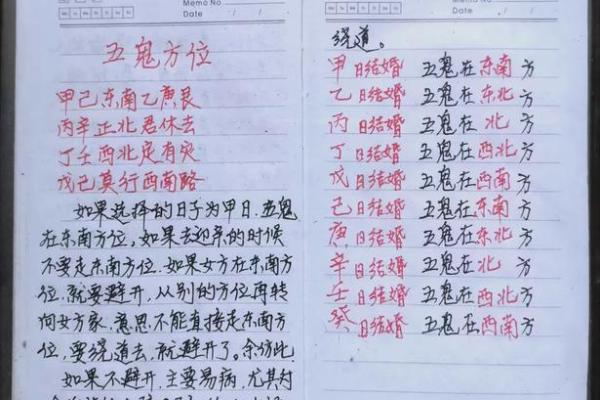 Memo No
Date / /
五鬼方位
甲己东南乙庚艮
丙辛正北君休去
丁壬西北定有灾
戊己莫行西南路
如果选择的日子为甲日.五鬼
在东南方位,如果去迎亲的时候
不要走东南方位.如果女方在东南方
位.就要避开,从别的方位再转
向女方家,意思不能直接走东南方
位,要绕道去,就避开了。余仿此
如果不避开,主要易病,尤其对
Memo No
Date / /
绕道。
甲日结婚 五鬼在东南方
乙日结婚 五鬼在东北方
丙日结婚 五鬼在北方
丁日结婚 五鬼在西北方
戊日结婚 五鬼在西南方
己日结婚 五鬼在东南方
庚日结婚 五鬼在东北方
辛日结婚 五鬼在北方
壬日结婚 五鬼在西北方
癸日结婚 五鬼在西南方